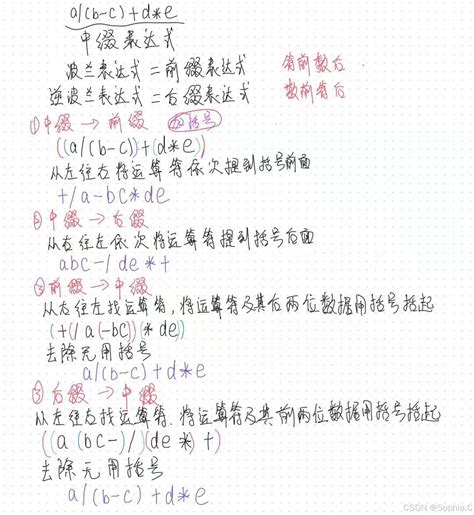 a/(b-c)+d*e
中缀表达式
波兰表达式=前缀表达式 符前数后
逆波兰表达式=后缀表达式 数前符后
①中缀→前缀 加括号
((a/(b-c))+(d*e))
从左往右将运算符依次提到括号前面
+/a-bc*de
②中缀→后缀
从右往左依次将运算符提到括号后面
abc-/de*+
③前缀→中缀
从右往左找运算符,将运算符及其后两位数据用括号括起
(+(/a(-bc))(*de))
去除无用括号
a/(b-c)+d*e
③后缀→中缀
从左往右找运算符,将运算符及其前两位数据用括号括起
((a(bc-)/)(de*)+)
去除无用括号
a/(b-c)+d*e
CSDN @Sophia.C